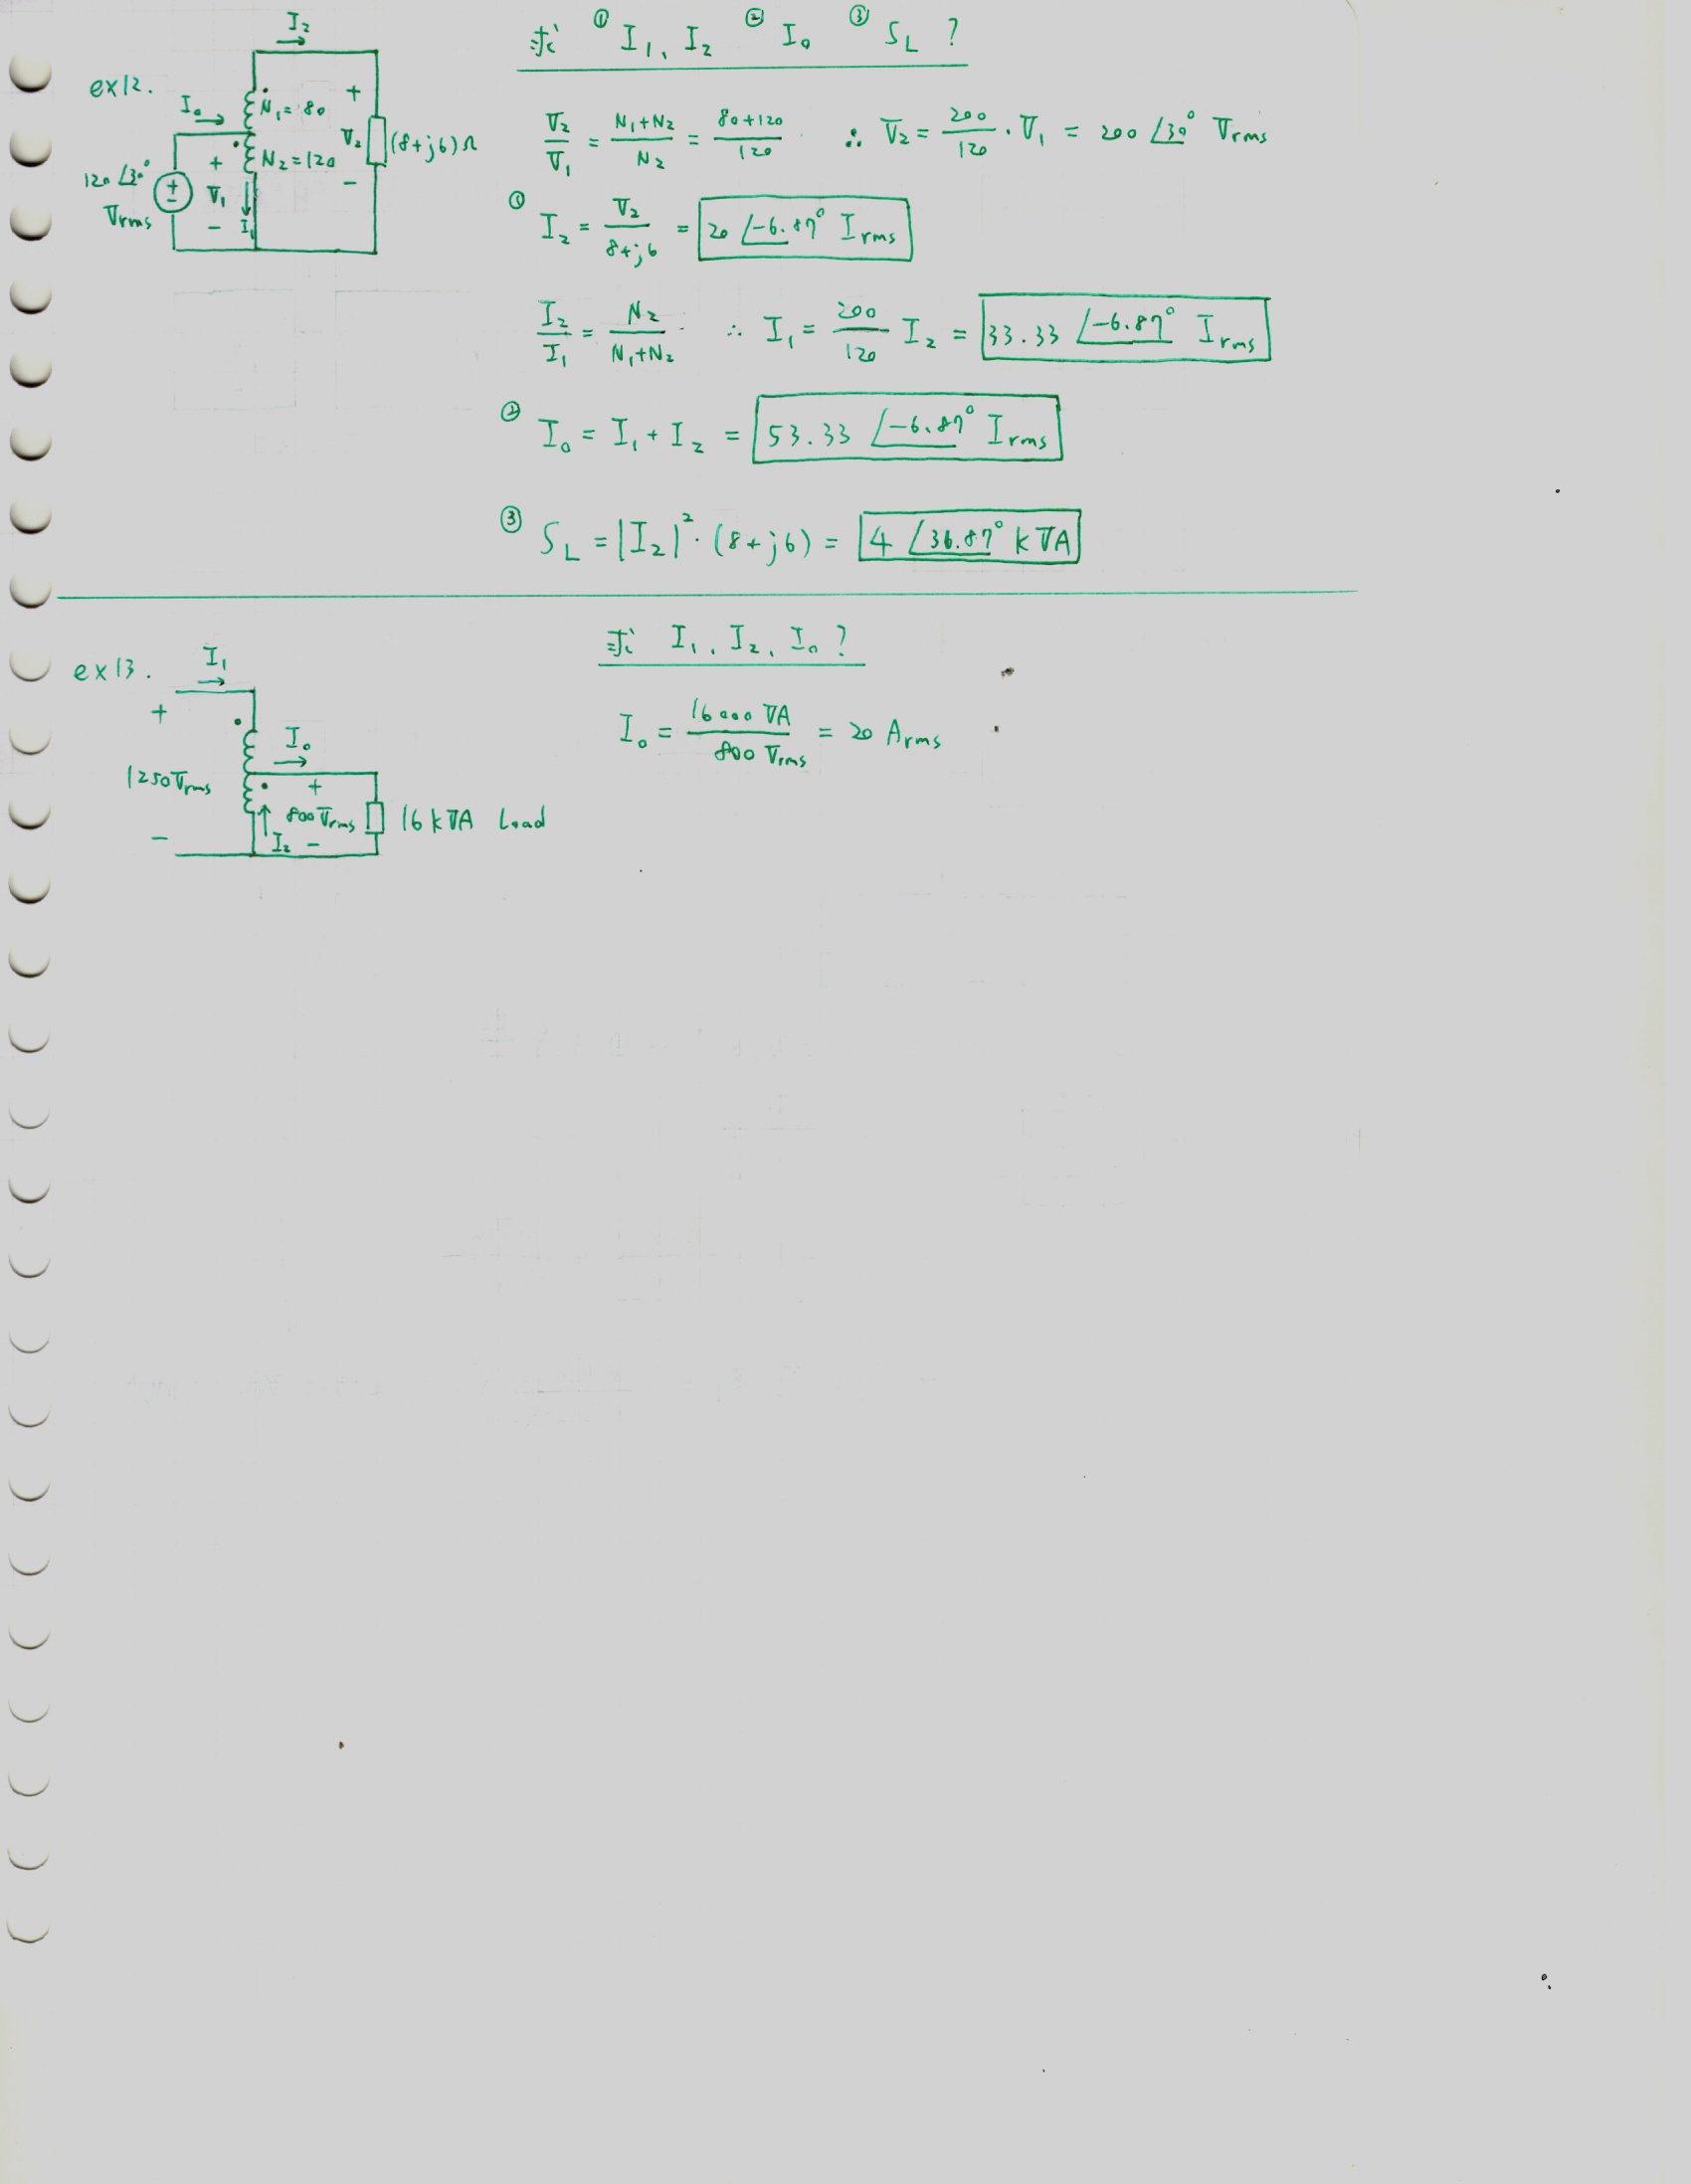 ex12.
I₂
I₀
N₁=80
N₂=120
120∠30° Vrms
+ V₁ −
I₁
+ V₂ −
(8+j6)Ω
求 ① I₁、I₂ ② I₀ ③ S_L ?
V₂/V₁ = (N₁+N₂)/N₂ = (80+120)/120 ∴ V₂ = 200/120 · V₁ = 200∠30° Vrms
① I₂ = V₂/(8+j6) = 20∠-6.87° Irms
I₂/I₁ = N₂/(N₁+N₂) ∴ I₁ = 200/120 I₂ = 33.33∠-6.87° Irms
② I₀ = I₁ + I₂ = 53.33∠-6.87° Irms
③ S_L = |I₂|² · (8+j6) = 4∠36.87° kVA
ex13.
I₁
+ 1250Vrms −
I₀
+ 800Vrms −
I₂
16kVA Load
求 I₁、I₂、I₀ ?
I₀ = 16000 VA / 800 Vrms = 20 Arms